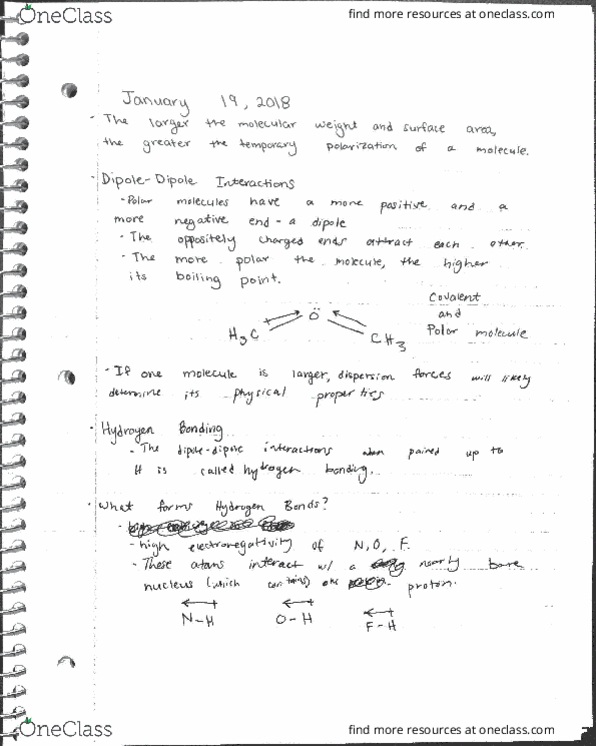 OneClass
find more resources at oneclass.com
January 19, 2018
· The larger the molecular weight and surface area,
the greater the temporary polarization of a molecule.
· Dipole-Dipole Interactions
· Polar molecules have a more positive and a
more negative end - a dipole
· The oppositely charged ends attract each other.
· The more polar the molecule, the higher
its boiling point.
Covalent
and
Polar molecule
Ö
H3C
CH3
· If one molecule is larger, dispersion forces will likely
determine its physical properties
· Hydrogen Bonding
- The dipole-dipole interactions when paired up to
H is called hydrogen bonding.
· What forms Hydrogen Bonds?
- high electronegativity of N, O, F.
- These atoms interact w/ a nearly bare
nucleus (which contains) one proton.
N-H
O-H
F-H
OneClass
find more resources at oneclass.com